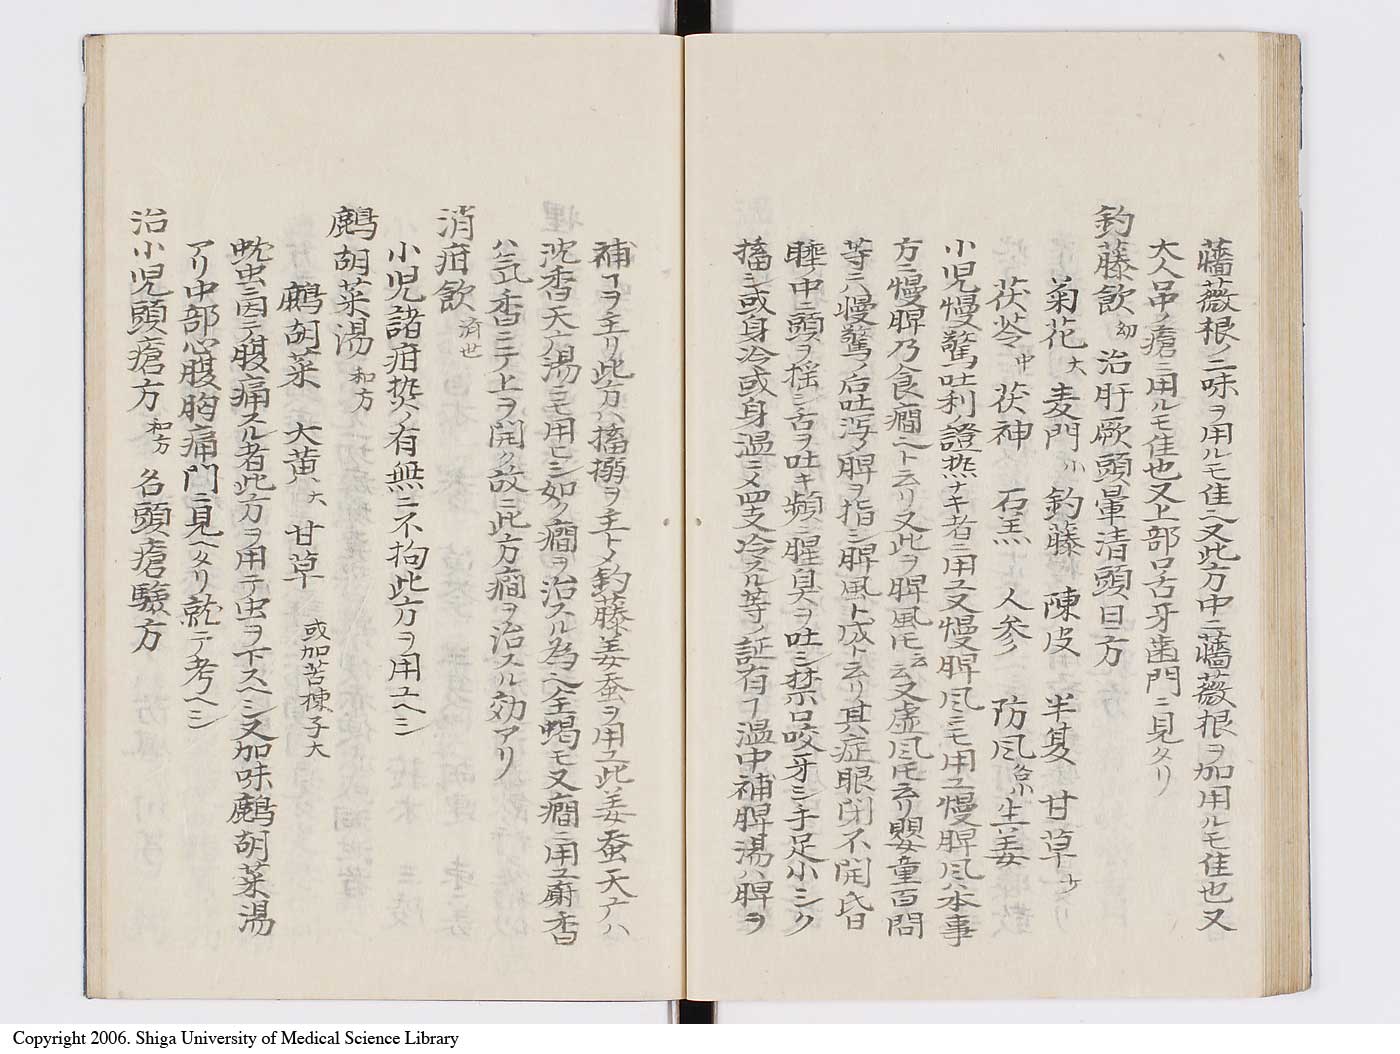 薔薇根ノ二味ヲ用ルモ佳シ又此方中ニ薔薇根ヲ加用ルモ佳也又
大人口中ノ瘡ニ用ルモ佳也又上部口舌牙歯門ニ見タリ
釣藤飲 幼 治肝厥頭暈清頭目方
菊花 大 麦門 小 釣藤 陳皮 半夏 甘草 少
茯苓 中 茯神 石羔 人参 防風 各小 生姜
小児慢驚吐利ノ證熱ナキ者ニ用又慢脾風ニモ用ユ慢脾風ハ本事
方ニ慢脾乃食癇ヘト云リ又此ヲ脾風氏云又虚風氏云リ嬰童百問
等ニハ慢驚ノ后吐瀉脾ヲ指シ脾風ト成ト云リ其症眼閉不開昏
睡ノ中ニ頭ヲ揺シ舌ヲ吐キ頻ニ腥臭ヲ吐シ禁口咬牙シ手足小シク
搐シ或身冷或身温ニメ四支冷スル等ノ証有ヿ温中補脾湯ハ脾ヲ
補ヿヲ主リ此方ハ搐搦ヲ主トメ釣藤姜蚕ヲ用ユ此姜蚕天六ハ
沈香天六湯ニモ用ヒシ如ク癇ヲ治スル為ヘ全蝎モ又癇ニ用ユ麝香
ハ気香ニテ上ヲ開ク故ニ此方癇ヲ治スル効アリ
消疳飲 済世
小児諸疳熱ヘ有無ニ不拘此方ヲ用ユヘシ
鷓胡菜湯 和方
鷓胡菜 大黄 大 甘草 或加苦楝子大
蚘虫ニ因テ腹痛スル者此方ヲ用テ虫ヲ下スヘシ又加味鷓胡菜湯
アリ中部心腹胸痛門ニ見ヘタリ就テ考ヘシ
治小児頭瘡方 和方 名頭瘡験方
Copyright 2006. Shiga University of Medical Science Library